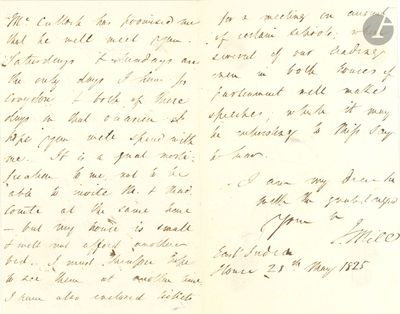 Mc Culloch has promised me
that he will meet you.
Saturdays & Sundays are
the only days I have for
Croydon & both of these
days on that occasion I
hope you will spend with
me. It is a great morti-
fication to me, not to be
able to invite Mr. & Mad.
Comte at the same time
— but my house is small
& will not afford another
bed. I must therefore hope
to see them at another time
I have also enclosed tickets
for a meeting on account
of certain schools, where
several of our leading
men in both houses of
Parliament will make
speeches, which it may
be interesting to Miss Say
to hear.
I am my Dear Sir
with the greatest regard
Yours
J. Mill
East India
House 23th May 1825